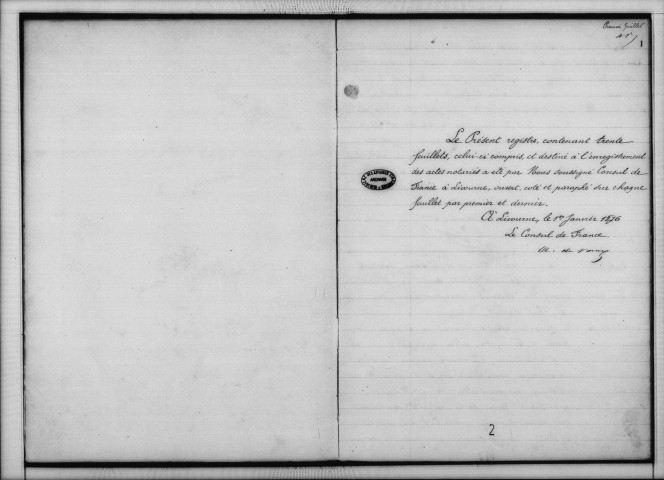 Premier feuillet
1
Le Présent registre, contenant trente
feuillets, celui-ci compris, et destiné à l'enregistrement
des actes notariés a été par Nous soussigné Consul de
France à Livourne, ouvert, coté et paraphé sur chaque
feuillet par premier et dernier.
À Livourne, le 1er Janvier 1876
Le Consul de France
ARCHIVES
2